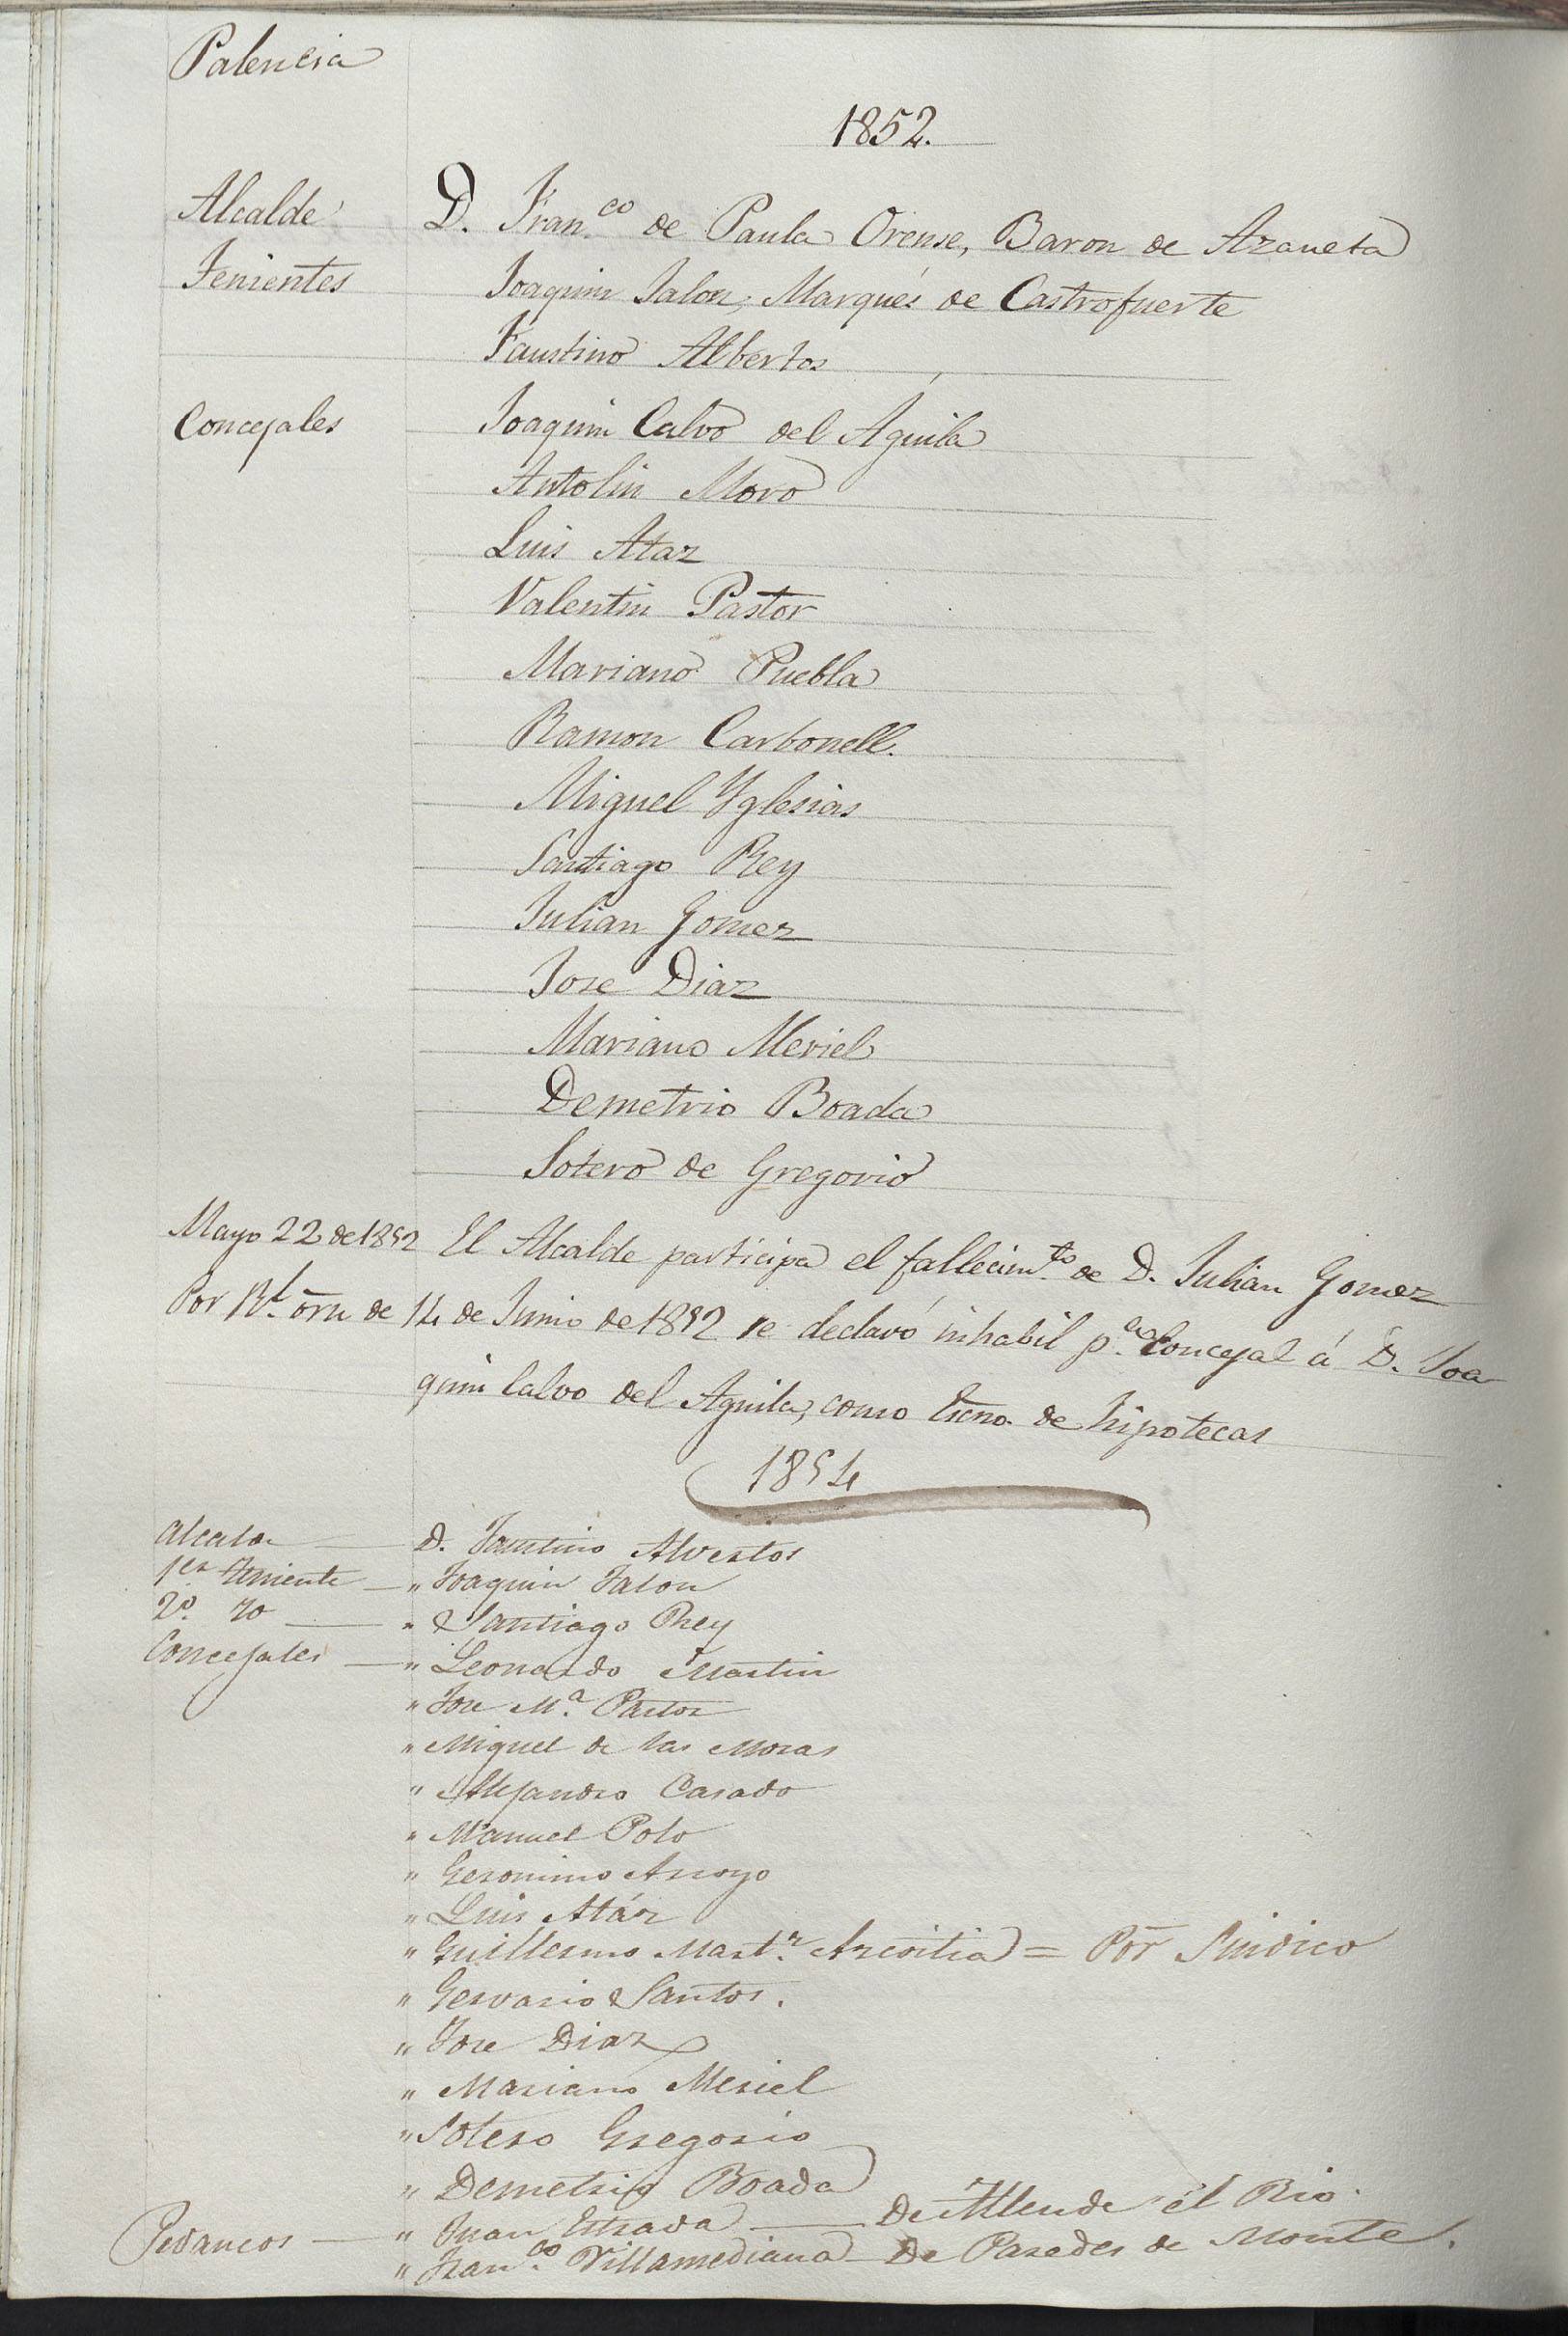 Palencia
1852.
Alcalde D. Fran.co de Paula Orense, Baron de Azaneta
Tenientes Joaquin Jalon, Marqués de Castrofuerte
Faustino Albertos
Concejales Joaquin Calvo del Aguila
Antolin Moro
Luis Ataz
Valentin Pastor
Mariano Puebla
Ramon Carbonell.
Miguel Yglesias
Santiago Rey
Julian Gomez
Jose Diaz
Mariano Meriel
Demetrio Boada
Sotero de Gregorio
Mayo 22 de 1852 El Alcalde participa el fallecim.to de D. Julian Gomez
Por Rl. orn de 14 de Junio de 1852 se declaró inhabil p.a Concejal á D. Joa
quin Calvo del Aguila, como Escno. de hipotecas
1854
Alcalde D. Faustino Alvertos
1er Teniente " Joaquin Jalon
2º. " Santiago Rey
Concejales " Leonardo Martin
" Jose M.a Pastor
" Miguel de las Moras
" Alejandro Casado
" Manuel Polo
" Geronimo Arroyo
" Luis Atáz
" Guillermo Mart.z Azcoitia = Por Sindico
" Gervasio Santos.
" Jose Diaz
" Mariano Meriel
" Sotero Gregorio
" Demetrio Boada
Pedaneos " Juan Estrada De Allende el Rio.
" Fran.co Villamediana De Paredes de Monte.